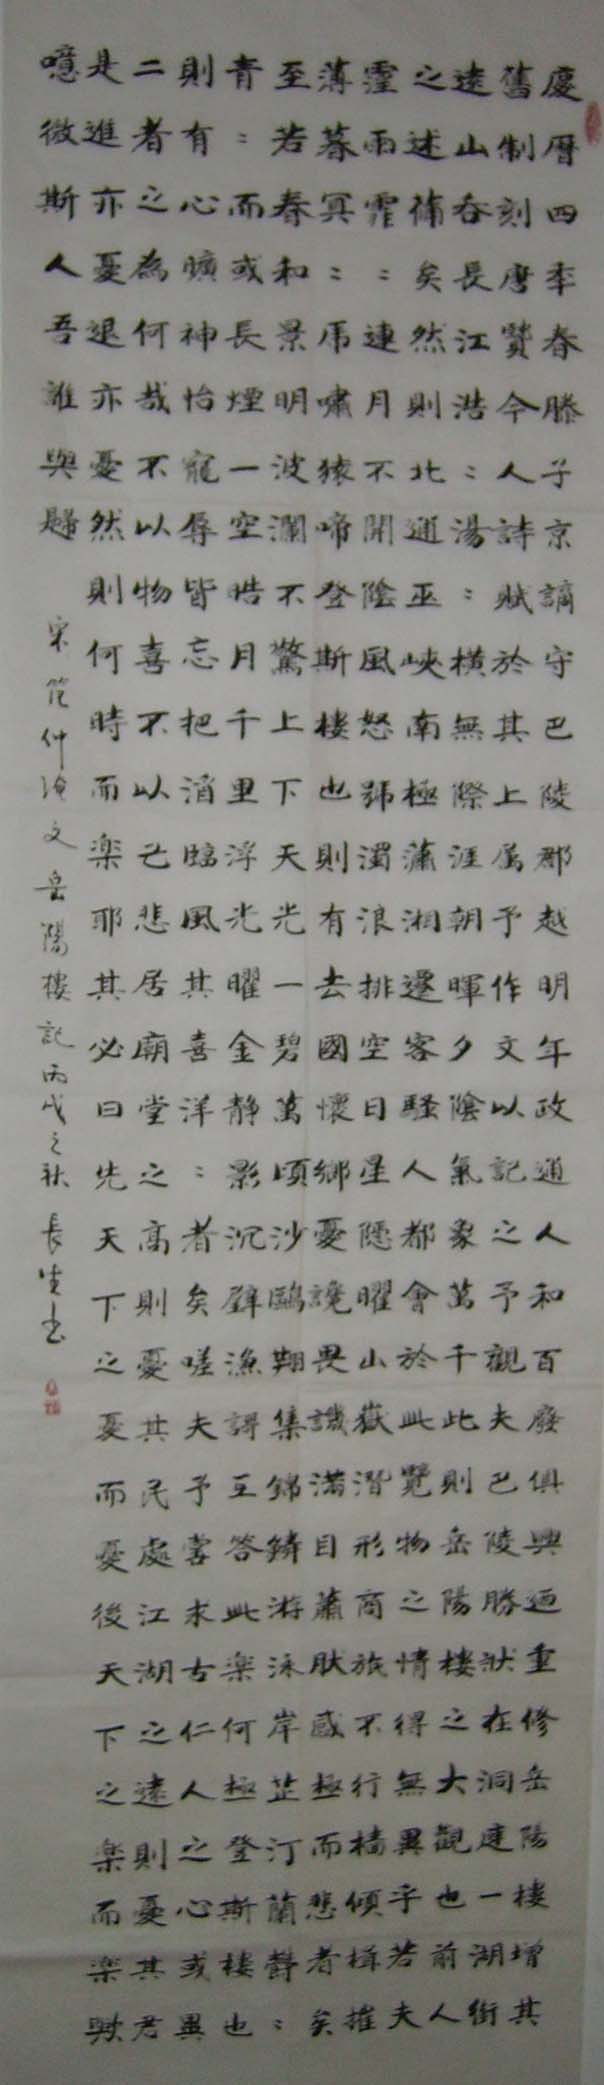 慶曆四年春滕子京謫守巴陵郡越明年政通人和百廢俱興迺重修岳陽樓增其
舊制刻唐賢今人詩賦於其上属予作文以記之予觀夫巴陵勝狀在洞庭一湖銜
遠山吞長江浩:湯:橫無際涯朝暉夕陰氣象萬千此則岳陽樓之大觀也前人
之述備矣然則北通巫峽南極瀟湘遷客騷人都會於此覽物之情得無異乎若夫
霪雨霏:連月不開陰風怒號濁浪排空日星隱曜山嶽潛形商旅不行檣傾楫摧
薄暮冥:虎嘯猿啼登斯樓也則有去國懷鄉憂讒畏譏滿目蕭然感極而悲者矣
至若春和景明波瀾不驚上下天光一碧萬頃沙鷗翔集錦鱗游泳岸芷汀蘭欝:
青:而或長煙一空皓月千里浮光曜金静影沉璧漁謌互答此楽何極登斯樓也
則有心曠神怡寵辱皆忘把酒臨風其喜洋:者矣嗟夫予嘗求古仁人之心或異
二者之為何哉不以物喜不以己悲居廟堂之高則憂其民處江湖之遠則憂其君
是進亦憂退亦憂然則何時而楽耶其必曰先天下之憂而憂後天下之楽而楽歟
噫微斯人吾誰與歸
宋范仲淹文岳陽樓記丙戌之秋長生書